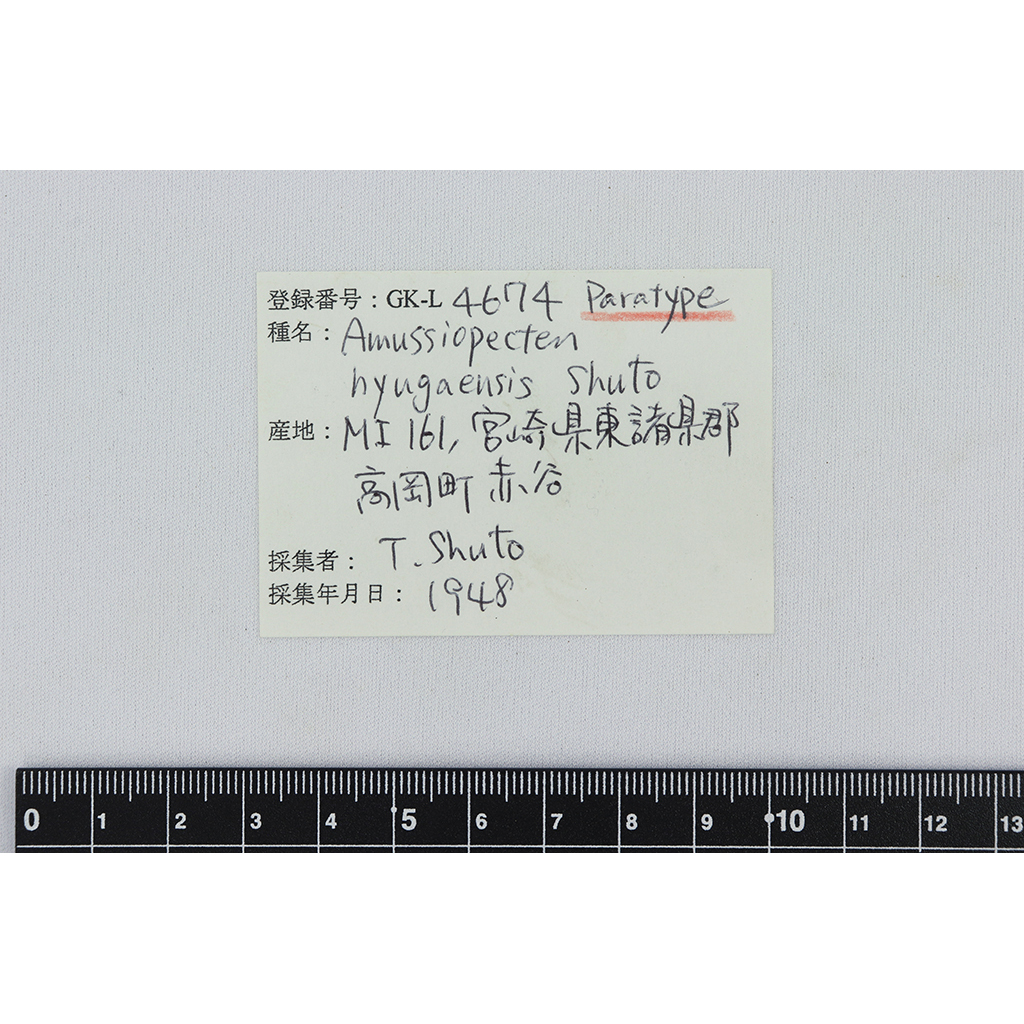 登録番号：GK-L 4674 Paratype
種名：Amussiopecten
hyugaensis Shuto
産地：MI 161, 宮崎県東諸県郡
高岡町 赤谷
採集者： T. Shuto
採集年月日： 1948
0 1 2 3 4 5 6 7 8 9 10 11 12 13